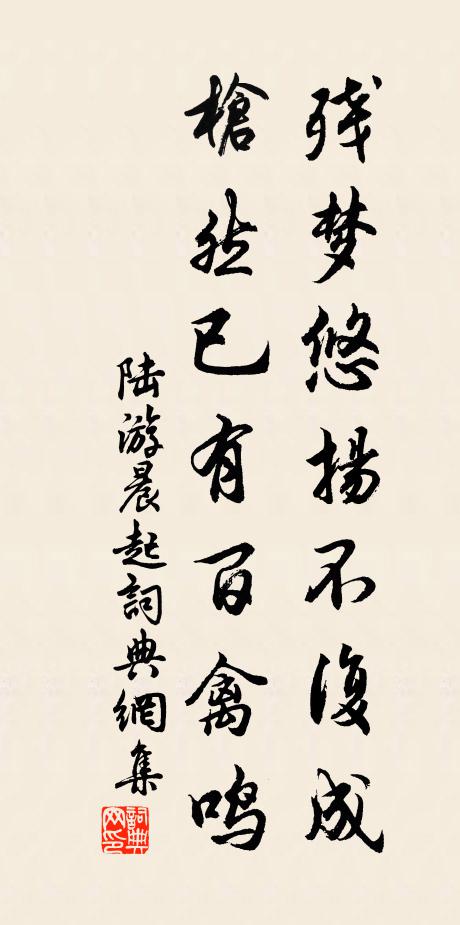 残梦悠揚不復成
槍然已有百禽鳴
陆游晨起詞典網集
詞典网印